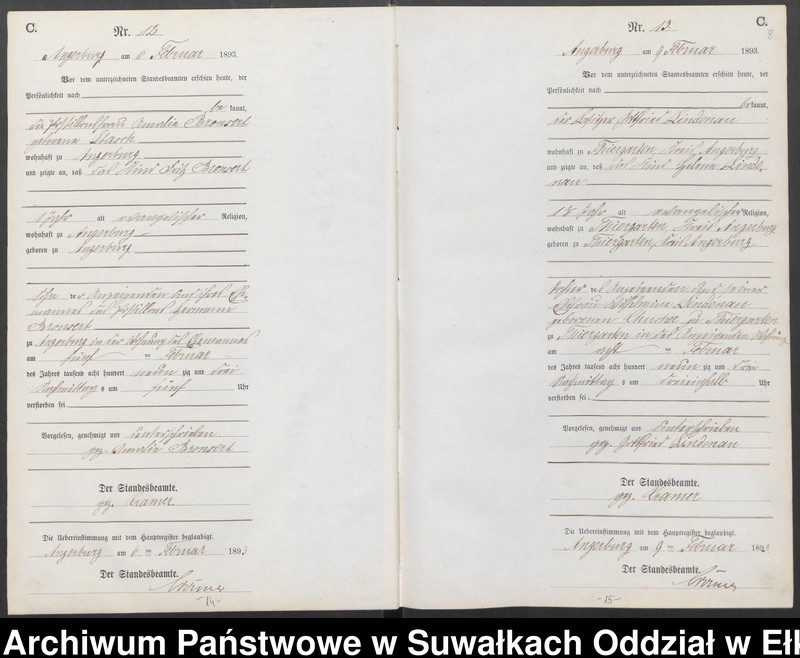 C.
Nr. 12
Angerburg am 6 Februar 1893.
Vor dem unterzeichneten Standesbeamten erschien heute, der
Persönlichkeit nach
be kannt,
die Postillonsfrau Amalia Bronsert
geborene
wohnhaft zu Angerburg
und zeigte an, daß das Kind Fritz Bronsert
1 Jahr alt evangelischer Religion,
wohnhaft zu Angerburg
geboren zu Angerburg
Sohn der Anzeigenden und ihres Ehe-
mannes des Postillons Hermann
Bronsert
zu Angerburg in der Wohnung des Ehemannes
am fünf ten Februar
des Jahres tausend acht hundert neun zig und drei
Nachmittag s um fünf Uhr
verstorben sei
Vorgelesen, genehmigt und unterschrieben
gez. Amalia Bronsert
Der Standesbeamte.
gez. Cramer.
Die Uebereinstimmung mit dem Hauptregister beglaubigt.
Angerburg am 6 ten Februar 1893
Der Standesbeamte.
-14-
C.
8
Nr. 13
Angerburg am 9 Februar 1893.
Vor dem unterzeichneten Standesbeamten erschien heute, der
Persönlichkeit nach
be kannt,
der Besitzer Gottfried Lindenau
wohnhaft zu Thiergarten, Kreis Angerburg
und zeigte an, daß das Kind Helene Linde-
nau
alt evangelischer Religion,
wohnhaft zu Thiergarten, Kreis Angerburg
geboren zu Thiergarten, Kreis Angerburg
Tochter des Anzeigenden und seiner
Ehefrau Wilhelmine Lindenau
geborenen zu Thiergarten
zu Thiergarten in des Anzeigenden Wohnung
am acht ten Februar
des Jahres tausend acht hundert neun zig und drei
Nachmittag s um Uhr
verstorben sei
Vorgelesen, genehmigt und unterschrieben
gez. Gottfried Lindenau
Der Standesbeamte.
gez. Cramer
Die Uebereinstimmung mit dem Hauptregister beglaubigt.
Angerburg am 9 ten Februar 1893
Der Standesbeamte.
-15-
Archiwum Państwowe w Suwałkach Oddział w Ełk